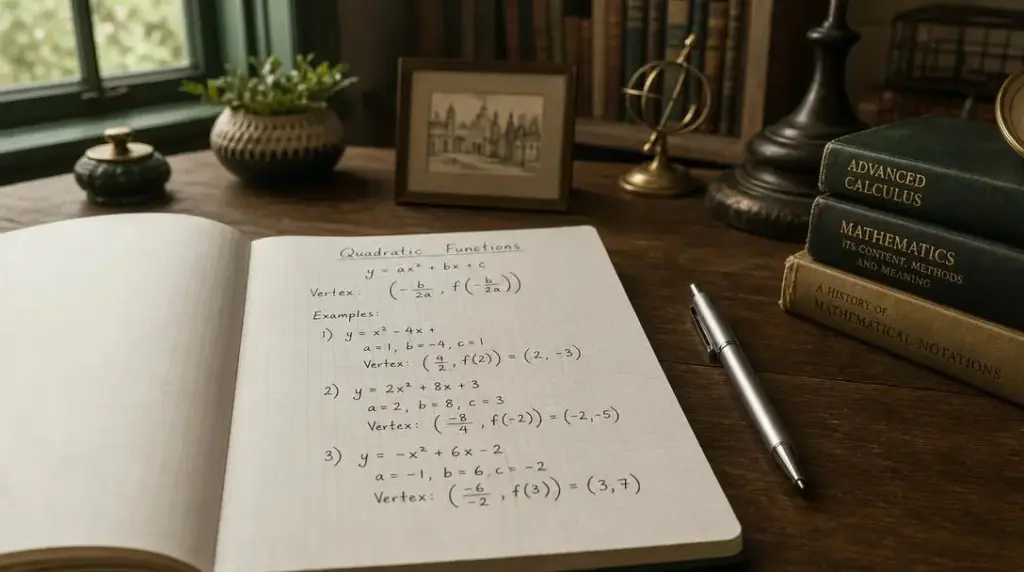 Quadratic Functions
y = ax² + bx + c
Vertex: (-b/2a, f(-b/2a))
Examples:
1) y = x² - 4x +
a = 1, b = -4, c = 1
Vertex: (4/2, f(2)) = (2, -3)
2) y = 2x² + 8x + 3
a = 2, b = 8, c = 3
Vertex: (-8/4, f(-2)) = (-2, -5)
3) y = -x² + 6x - 2
a = -1, b = 6, c = -2
Vertex: (-6/-2, f(3)) = (3, 7)
ADVANCED
CALCULUS
MATHEMATICS
ITS CONTENT, METHODS
AND MEANING
A HISTORY OF
MATHEMATICAL NOTATIONS